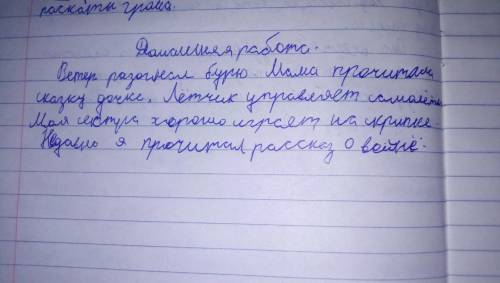 раскаты грома.
Домашняя работа.
Ветер разогнал бурю. Мама прочитала
сказку дочке. Лётчик управляет самолётом
Моя сестра хорошо играет на скрипке.
Недавно я прочитал рассказ о войне.